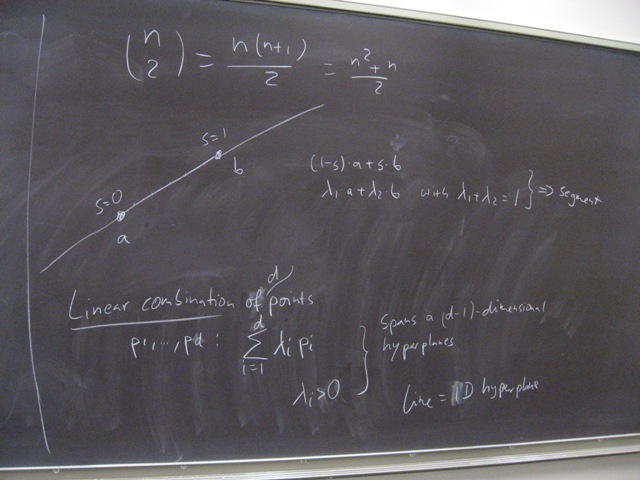 (n 2) = n(n+1)/2 = n²+n/2
s=1
b
s=0
a
(1-s)·a+s·b
λ₁·a+λ₂·b with λ₁+λ₂=1 } ⇒ segment
d
Linear combination of points
p1,...,pd : d∑i=1 λi pi
λi>0
} Spans a (d-1)-dimensional
hyperplanes
Line = 1D hyperplane